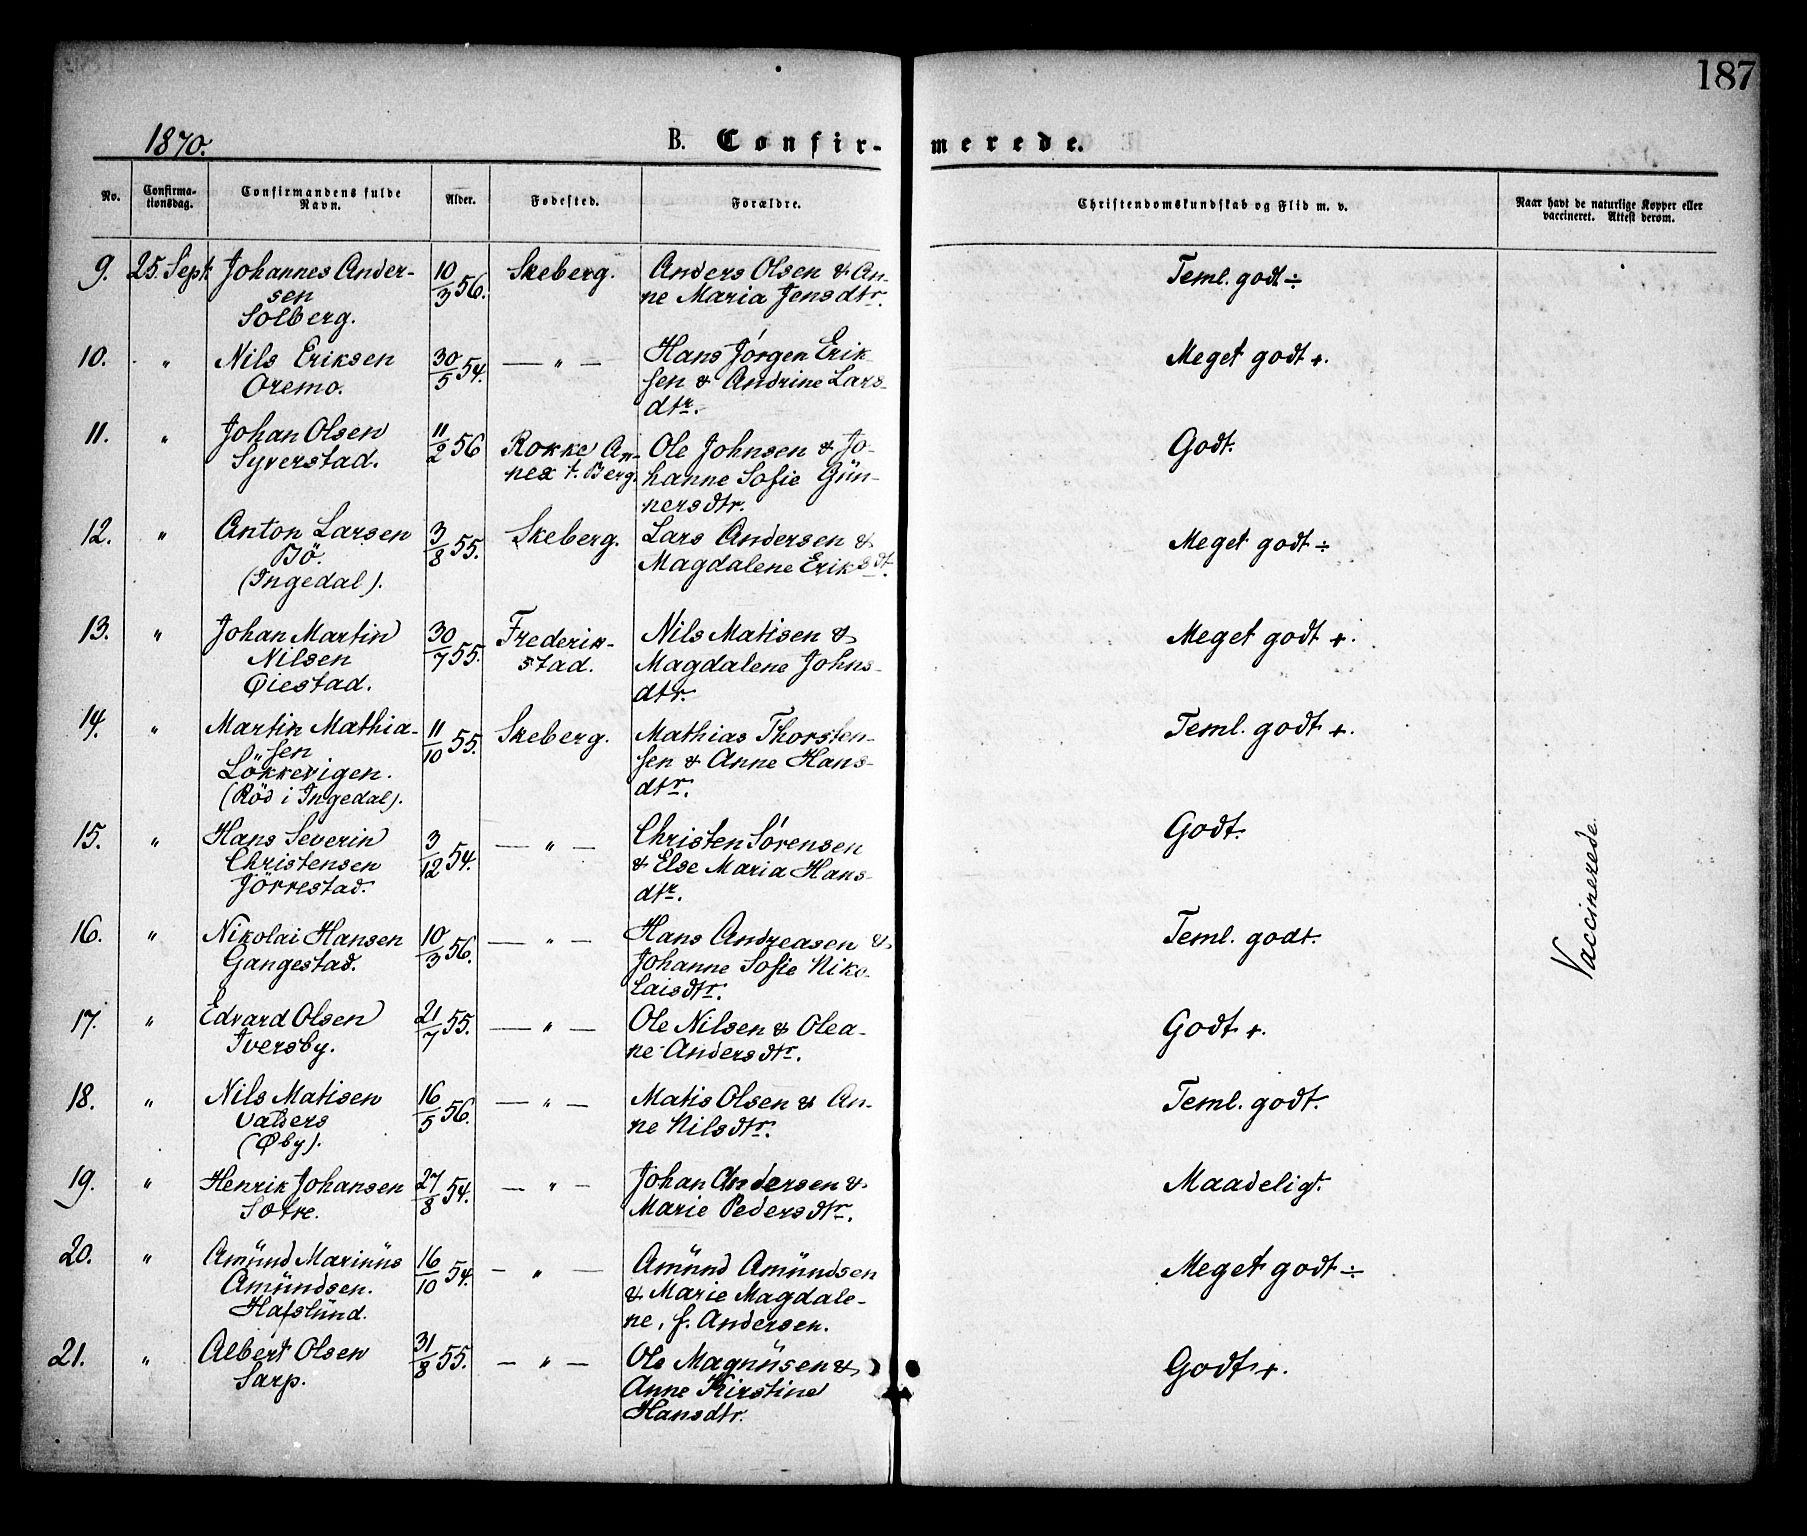 187
1870.
B. Confirmerede.
No. Confirmationsdag. Confirmandens fulde Navn. Alder. Fødested. Forældre. Christendomskundskab og Flid m. v. Naar havt de naturlige Kopper eller vaccineret. Attest derom.
9. 25. Sept. Johannes Ander- 10/3 56. Skeberg. Anders Olsen & An- Teml. godt ÷
sen ne Maria Jensdtr.
Solberg.
10. " Nils Eriksen 30/5 54. — " — Hans Jörgen Erik Meget godt +.
Oremo. sen & Andrine Lars-
dtr.
11. " Johan Olsen 11/2 56 Rokke An- Ole Johnsen & Jo- Godt.
Syverstad. nex t. Berg. hanne Sofie Gün-
nersdtr.
12. " Anton Larsen 3/8 55. Skeberg. Lars Andersen & Meget godt ÷
Bö. Magdalene Eriksdt.
(Ingedal).
13. " Johan Martin 30/7 55. Frederik- Nils Matisen & Meget godt +.
Nilsen stad. Magdalene Johns-
Øiestad. dtr.
14. " Martin Mathia- 11/10 55. Skeberg. Mathias Thorsten- Teml. godt +.
sen sen & Anne Hans-
Lökkevigen. dtr.
(Röd i Ingedal).
15. " Hans Severin 3/12 54. — " — Christen Sörensen Godt.
Christensen & Else Maria Hans-
Jörrestad. dtr.
16. " Nikolai Hansen 10/3 56. — " — Hans Andreasen & Teml. godt.
Gangestad. Johanne Sofie Niko-
laisdtr.
17. " Edvard Olsen 21/7 55. — " — Ole Nilsen & Olea- Godt +.
Iversby. ne Andersdtr.
18. " Nils Matisen 16/5 56. — " — Matis Olsen & An- Teml. godt.
Valders ne Nilsdtr.
(Øby).
19. " Henrik Johansen 27/8 54. — " — Johan Andersen & Maadeligt.
Sotre. Marie Pedersdtr.
20. " Amünd Marinüs 16/10 54. — " — Amünd Amündsen Meget godt ÷
Amündsen. & Marie Magdale-
Hafslünd. ne, f. Andersen.
21. " Albert Olsen 31/8 55. — " — Ole Magnüsen & Godt +.
Sarp. Anne Kirstine
Hansdtr.
Vaccinerede.